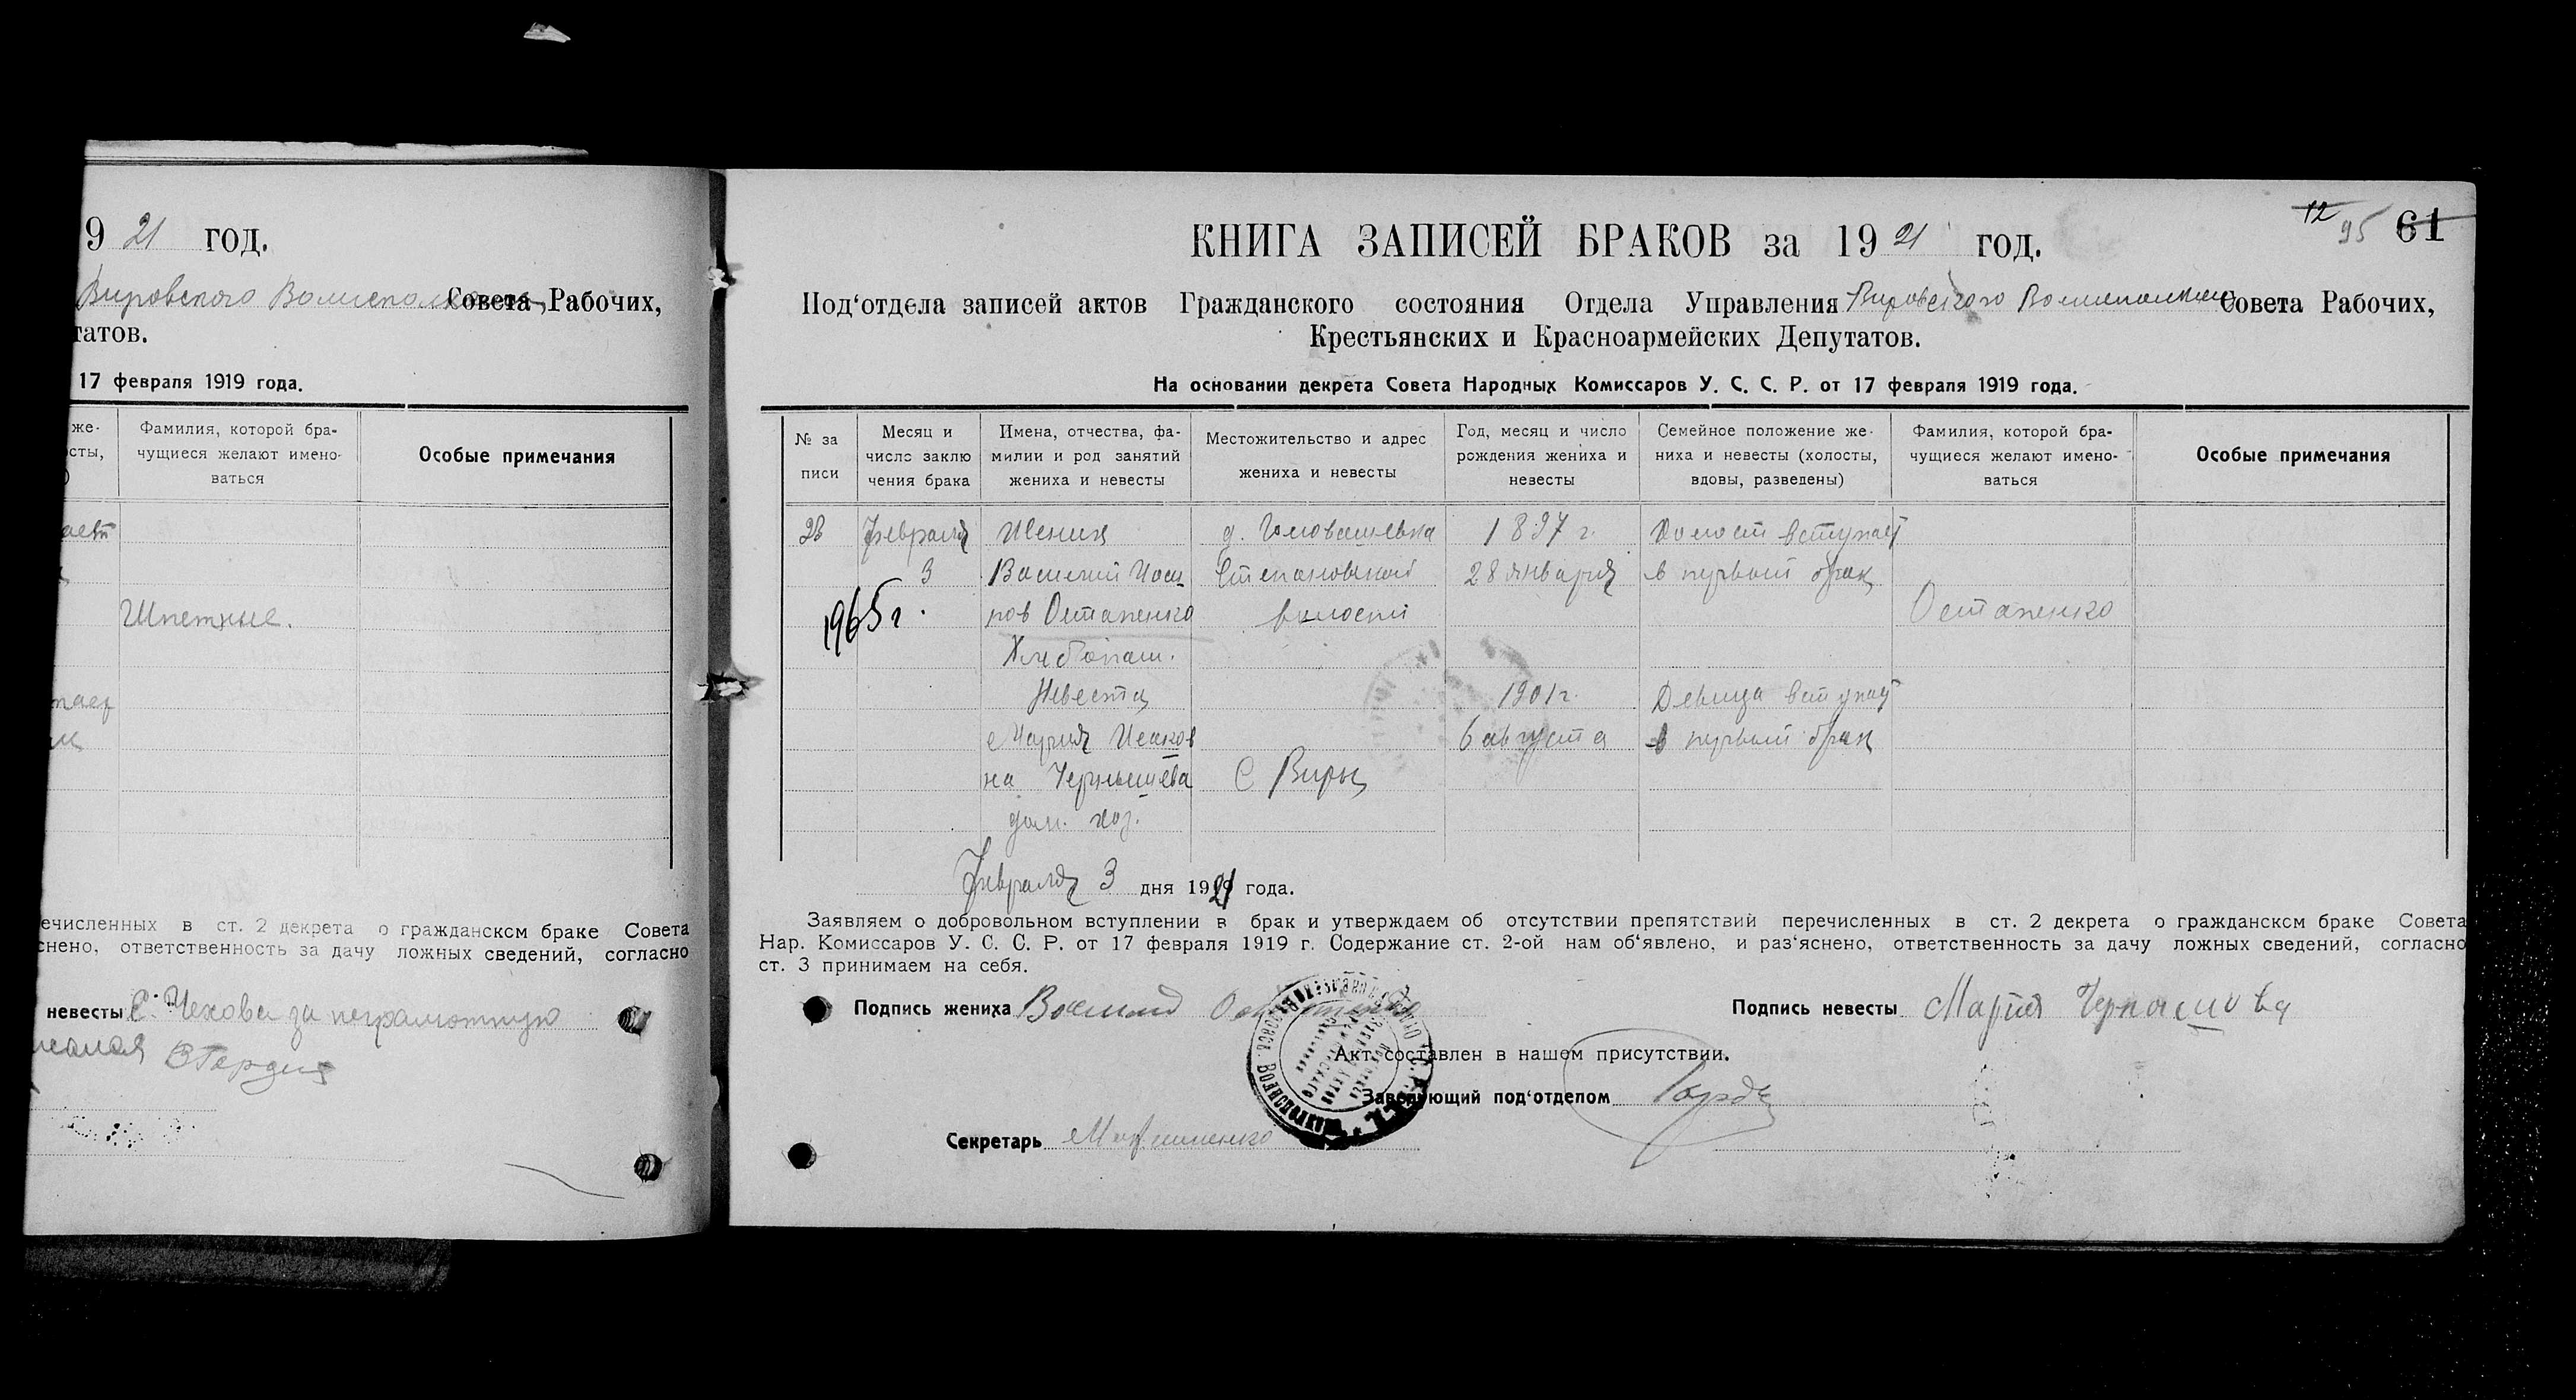 9 21 год.
Вировского Волисполкома Совета Рабочих,
татов.
17 февраля 1919 года.
же-
сты,
)
Фамилия, которой бра-
чущиеся желают имено-
ваться
Особые примечания
Шпетные.
ечисленных в ст. 2 декрета о гражданском браке Совета
снено, ответственность за дачу ложных сведений, согласно
невесты С. Чехова за неграмотную
12 95 61
КНИГА ЗАПИСЕЙ БРАКОВ за 1921 год.
Под‘отдела записей актов Гражданского состояния Отдела Управления Вировского Волисполкома Совета Рабочих,
Крестьянских и Красноармейских Депутатов.
На основании декрета Совета Народных Комиссаров У. С. С. Р. от 17 февраля 1919 года.
№ за
писи
Месяц и
число заклю
чения брака
Имена, отчества, фа-
милии и род занятий
жениха и невесты
Местожительство и адрес
жениха и невесты
Год, месяц и число
рождения жениха и
невесты
Семейное положение же-
ниха и невесты (холосты,
вдовы, разведены)
Фамилия, которой бра-
чущиеся желают имено-
ваться
Особые примечания
Февраля Жених д. Головашевка 1897 г. Холост вступает
3 Василий Иоси Степановской 28 января в первый брак
1965 г. пов Остапенко волости Остапенко
Хлебопаш.
Невеста 1901 г. Девица вступает
Мария Исаков 6 августа в первый брак
на Чернышева С Виры
дом. хоз.
Февраля 3 дня 1921 года.
Заявляем о добровольном вступлении в брак и утверждаем об отсутствии препятствий перечисленных в ст. 2 декрета о гражданском браке Совета
Нар. Комиссаров У. С. С. Р. от 17 февраля 1919 г. Содержание ст. 2-ой нам об‘явлено, и раз‘яснено, ответственность за дачу ложных сведений, согласно
ст. 3 принимаем на себя.
Подпись жениха Василий Остапенко Подпись невесты Мария Чернашова
Акт составлен в нашем присутствии.
Заведующий под‘отделом
Секретарь